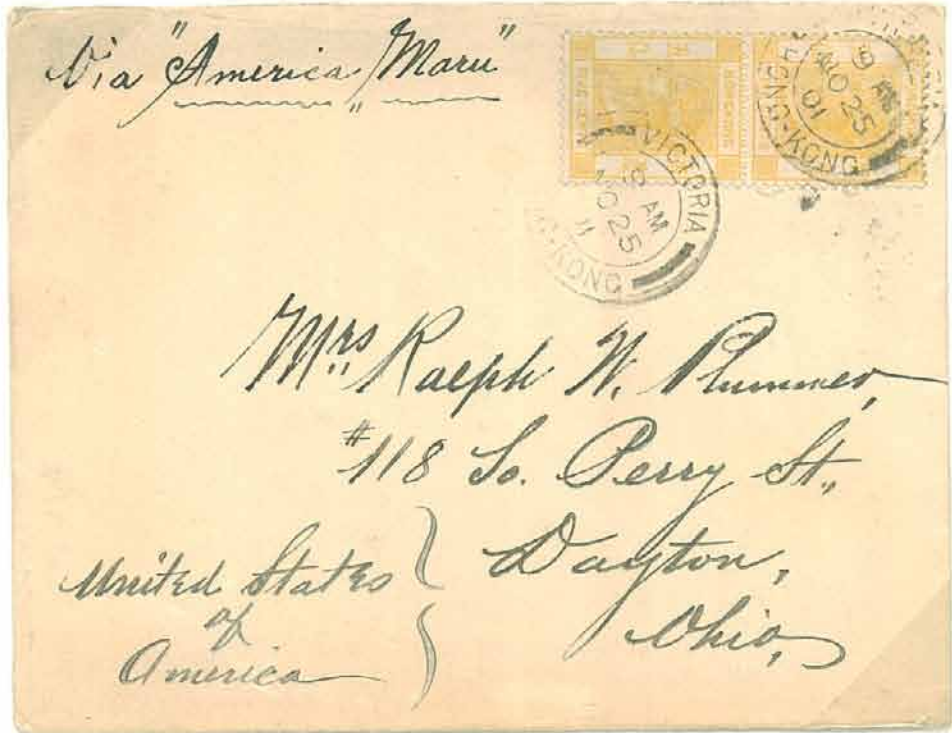 Via "America Maru"
VICTORIA
9 AM
NO 25
11
G-KONG
9 AM
NO 25
01
HONG-KONG
HONGKONG
Mrs Ralph W. Plummer,
#118 So. Perry St.,
Dayton,
Ohio,
United States
of
America